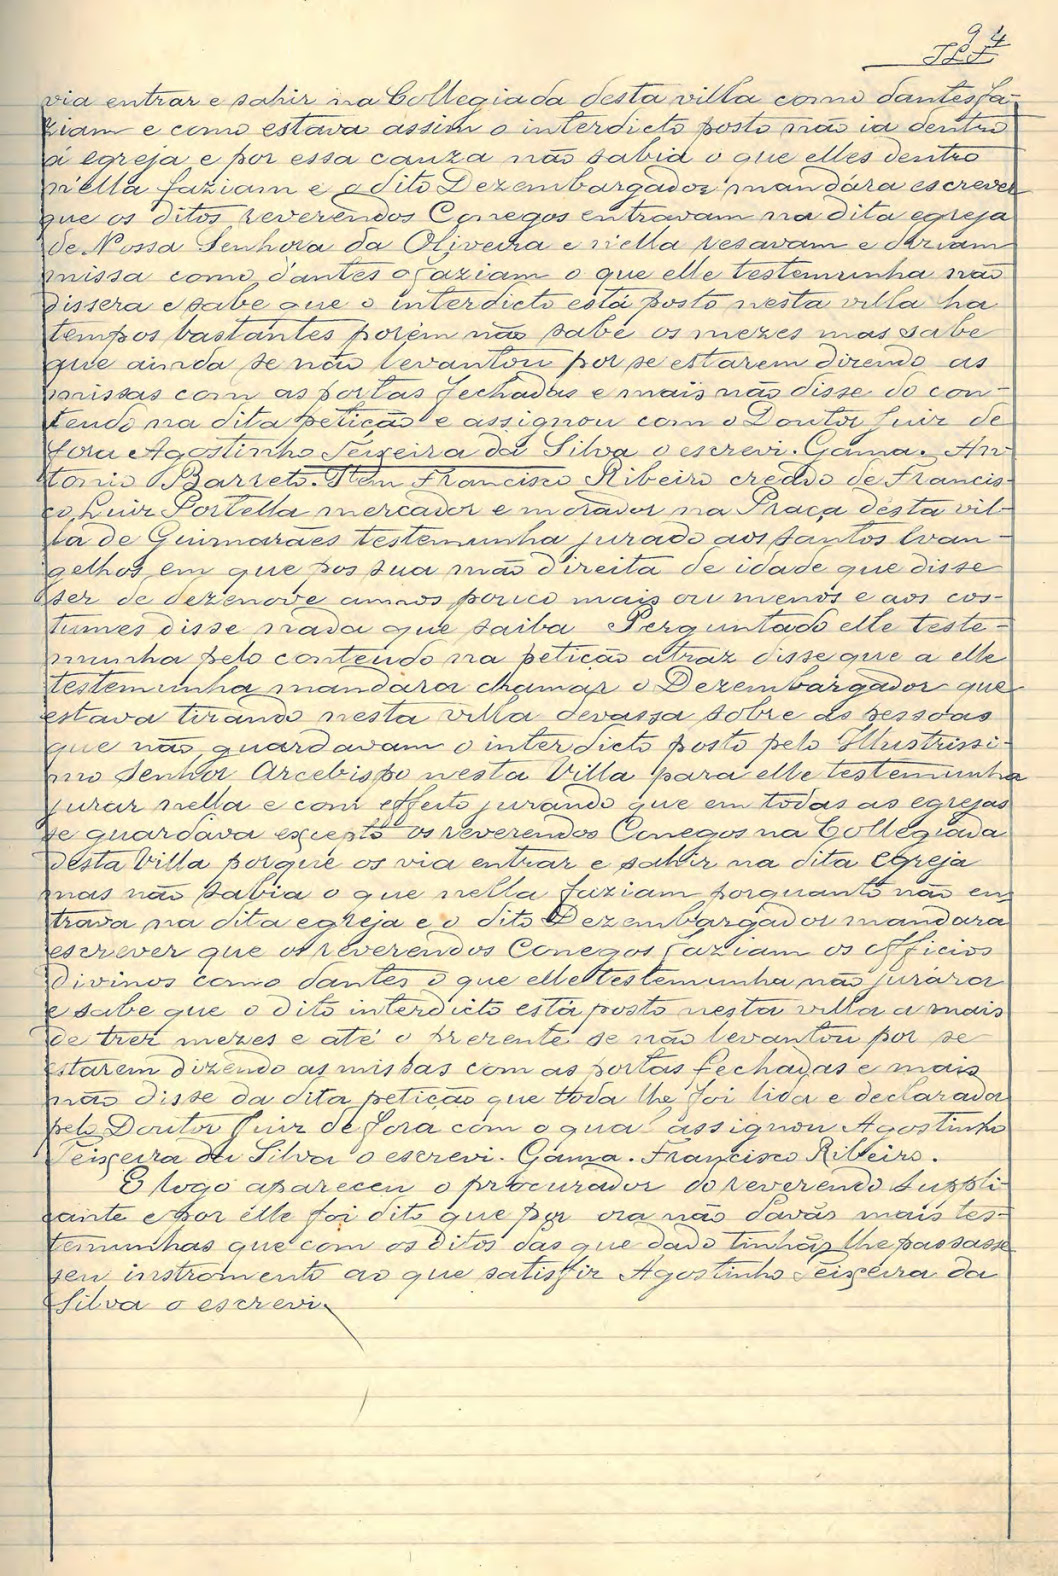 94
via entrar e sahir na Collegiada desta villa como dantes fa-
ziam e como estava assim o interdicto posto não ia dentro
á egreja e por essa cauza não sabia o que elles dentro
n'ella faziam e o dito Dezembargador mandára escrever
que os ditos reverendos Conegos entravam na dita egreja
de Nossa Senhora da Oliveira e n'ella resavam e diziam
missa como d'antes o faziam o que elle testemunha não
dissera e sabe que o interdicto está posto nesta villa ha
tempos bastantes porém não sabe os mezes mas sabe
que ainda se não levantou por se estarem dizendo as
missas com as portas fechadas e mais não disse do con-
teudo na dita petição e assignou com o Doutor Juiz de
fora Agostinho Teixeira da Silva o escrevi. Gama. An-
tonio Barreto. Item Francisco Ribeiro creado de Francis-
co Luiz Portella mercador e morador na Praça desta vil-
la de Guimarães testemunha jurado aos Santos Evan-
gelhos em que pos sua mão direita de idade que disse
ser de dezenove annos pouco mais ou menos e aos cos-
tumes disse nada que saiba Perguntado elle teste-
munha pelo conteudo na petição atraz disse que a elle
testemunha mandara chamar o Dezembargador que
estava tirando nesta villa devassa sobre as pessoas
que não guardavam o interdicto posto pelo Illustrissi-
mo Senhor Arcebispo nesta Villa para elle testemunha
jurar nella e com effeito jurando que em todas as egrejas
se guardava excepto os reverendos Conegos na Collegiada
desta Villa porque os via entrar e sahir na dita egreja
mas não sabia o que nella faziam porquanto não en-
trava na dita egreja e o dito Dezembargador mandara
escrever que os reverendos Conegos faziam os officios
divinos como dantes o que elle testemunha não jurára
e sabe que o dito interdicto está posto nesta villa a mais
de trez mezes e até o prezente se não levantou por se
estarem dizendo as missas com as portas fechadas e mais
não disse da dita petição que toda lhe foi lida e declarada
pelo Doutor Juiz de fora com o qual assignou Agostinho
Teixeira da Silva o escrevi. Gama. Francisco Ribeiro.
E logo apareceu o procurador do reverendo suppli-
cante e por elle foi dito que por ora não davão mais tes-
temunhas que com os ditos das que dado tinhão lhe passasse
seu instromento ao que satisfiz Agostinho Teixeira da
Silva o escrevi